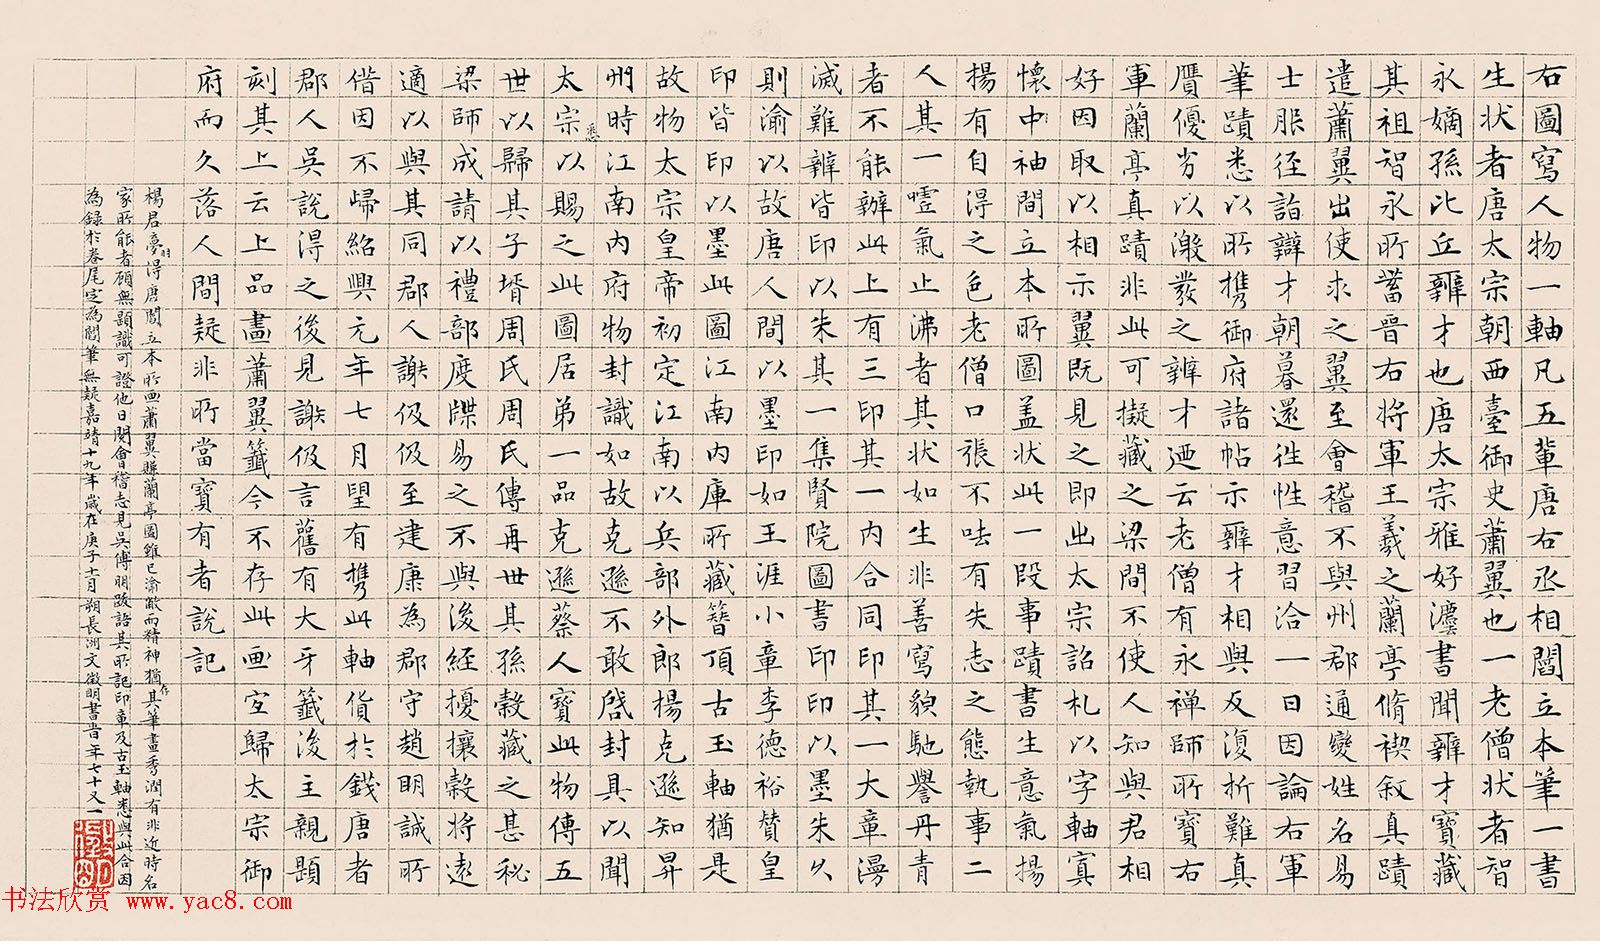 右圖寫人物一軸凡五輩唐右丞相閻立本筆一書
生狀者唐太宗朝西臺御史蕭翼也一老僧狀者智
永嫡孫比丘辯才也唐太宗雅好灋書聞辯才寶藏
其祖智永所蓄晉右將軍王羲之蘭亭脩禊敘真蹟
遣蕭翼出使求之翼至會稽不與州郡通變姓名易
士服徑詣辯才朝暮還往性意習洽一日因論右軍
筆蹟悉以所攜御府諸帖示辯才相與反復折難真
贋優劣以激發之辨才迺云老僧有永禪師所寶右
軍蘭亭真蹟非此可擬藏之梁間不使人知與君相
好因取以相示翼既見之即出太宗詔札以字軸寘
懷中袖間立本所圖蓋狀此一段事蹟書生意氣揚
揚有自得之色老僧口張不呿有失志之態執事二
人其一噓氣止沸者其狀如生非善寫貌馳譽丹青
者不能辦此上有三印其一內合同印其一大章漫
滅難辨皆印以朱其一集賢院圖書印印以墨朱久
則渝以故唐人間以墨印如王涯小章李德裕贊皇
印皆印以墨此圖江南內庫所藏簪頂古玉軸猶是
故物太宗皇帝初定江南以兵部外郎楊克遜知昇
州時江南內府物封識如故克遜不敢啓封具以聞
太宗悉以賜之此圖居第一品克遜蔡人寶此物傳五
世以歸其子壻周氏周氏傳再世其孫穀藏之甚秘
梁師成請以禮部度牒易之不與後經擾攘穀將遠
適以與其同郡人謝伋伋至建康為郡守趙明誠所
借因不歸紹興元年七月望有攜此軸貨於錢唐者
郡人吳說得之後見謝伋言舊有大牙籤後主親題
刻其上云上品畫蕭翼籤今不存此画宜歸太宗御
府而久落人間疑非所當寶有者說記
楊君夢羽得唐閻立本所画蕭翼賺蘭亭圖雖已渝敝而精神猶存其筆畫秀潤有非近時名
家所能者顧無題識可證他日閱會稽志見吳傅朋跋語其所記印章及古玉軸悉與此合因
為錄於卷尾定為閻筆無疑嘉靖十九年歲在庚子七月朔長洲文徵明書旹年七十又一
徵明
书法欣赏 www.yac8.com